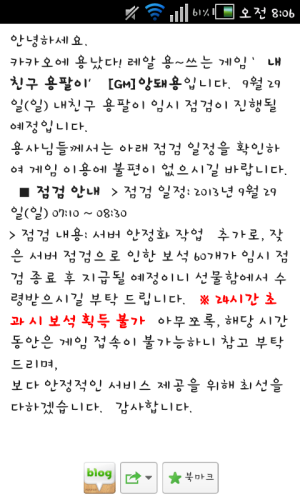 61% 오전 8:06
안녕하세요.
카카오에 용났다! 레알 용~쓰는 게임 ' 내
친구 용팔이' [GM]앙돼용입니다. 9월 29
일(일) 내친구 용팔이 임시 점검이 진행될
예정입니다.
용사님들께서는 아래 점검 일정을 확인하
여 게임 이용에 불편이 없으시길 바랍니다.
■ 점검 안내 > 점검 일정: 2013년 9월 29
일(일) 07:10 ~ 08:30
> 점검 내용: 서버 안정화 작업 추가로, 잦
은 서버 점검으로 인한 보석 60개가 임시 점
검 종료 후 지급될 예정이니 선물함에서 수
령받으시길 부탁 드립니다. ※ 24시간 초
과 시 보석 획득 불가 아무쪼록, 해당 시간
동안은 게임 접속이 불가능하니 참고 부탁
드리며,
보다 안정적인 서비스 제공을 위해 최선을
다하겠습니다. 감사합니다.
blog 북마크